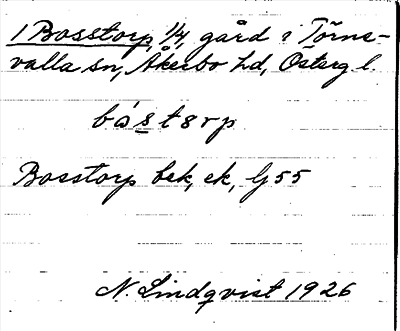 1 Bosstorp, 1/4, gård i Törne-
valla sn, Åkerbo hd, Österg l.
bóstsrp
Bosstorp bek, ek, G 55
N. Lindqvist 1926